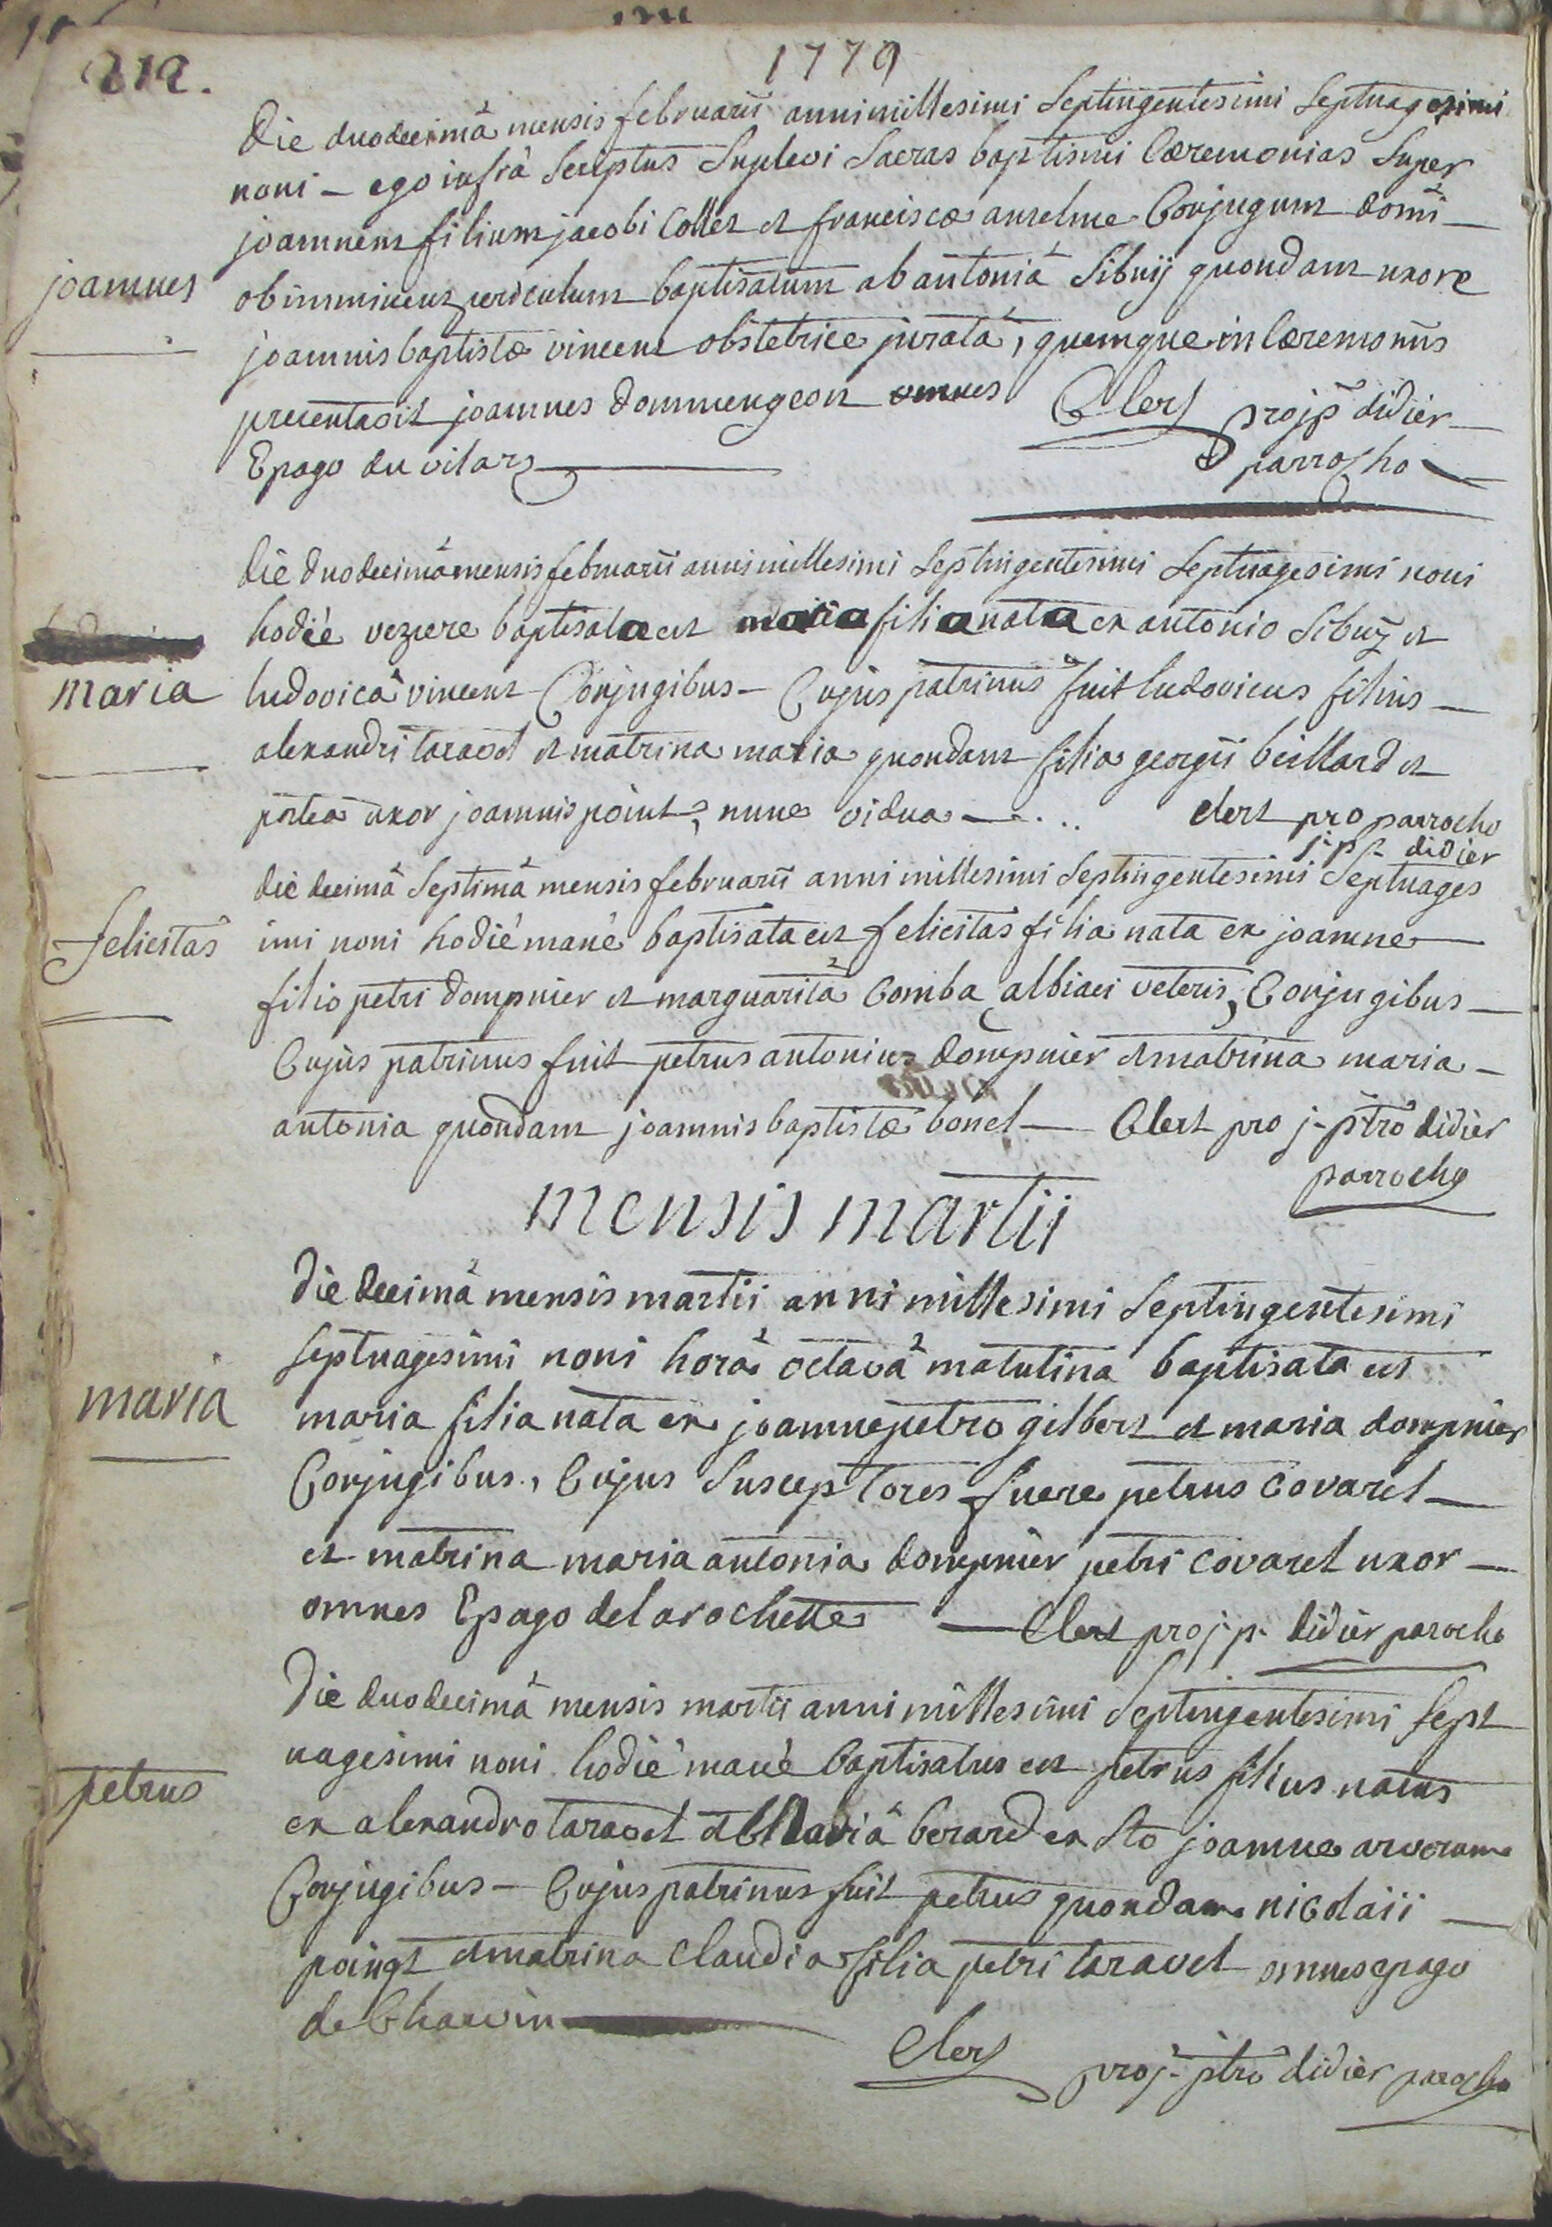 212.
1779
Die duodecimâ mensis februarii anni millesimi Septingentesimi Septuagesimi
noni - ego infrà Scriptus Suplevi Sacras baptismi Cæremonias Super
joannem filium jacobi Collet et franciscæ anselme Conjugum domi
joannes
ob imminens periculum baptisatum ab antoniâ Sibuij quondam uxore
joannis baptistæ vincent obstetrice juratâ, quemque in Cæremoniis
precentavit joannes dommengeon omnes Clert pro j p didier
Epago du vilar parrocho
die duodecimâ mensis februarii anni millesimi Septingentesimi Septuagesimi noni
hodiè vezpere baptisata est maria filia nata ex antonio Sibuÿ et
maria
ludovicâ vincent Conjugibus - Cujus patrinus fuit ludovicus filius
alexandri taravel et matrina maria quondam filia georgii beillard et
postea uxor joannis point, nunc vidua - ... Clert pro parrocho
j. p. didier
die decimâ Septimâ mensis februarii anni millesimi Septingentesimi Septuages
felicitas
imi noni hodiè manè baptisata est felicitas filia nata ex joanne
filio petri dompnier et marguaritâ Comba albiaci veteris, Conjugibus
Cujus patrinus fuit petrus antonius dompnier et matrina maria
antonia quondam joannis baptistæ bonel - Clert pro j. ptro didier
parrocho
mensis martii
die decimâ mensis martii anni millesimi Septingentesimi
Septuagesimi noni horâ octavâ matutina baptisata est
maria
maria filia nata ex joanne petro gilbert et maria dompnier
Conjugibus, Cujus Susceptores fuere petrus Covarel
et matrina maria antonia dompnier petri Covarel uxor
omnes Epago de la rochette - Clert pro j. p. didier parocho
Die duodecimâ mensis martii anni millesimi Septingentesimi Sept
uagesimi noni hodiè manè baptisatus est petrus filius natus
petrus
ex alexandro taravel et berard ex Sto joanne arveram
Conjugibus - Cujus patrinus fuit petrus quondam nicolaii
poingt et matrina Claudia filia petri taravel omnes epago
de Charvin
Clert pro j. ptro didier parocho